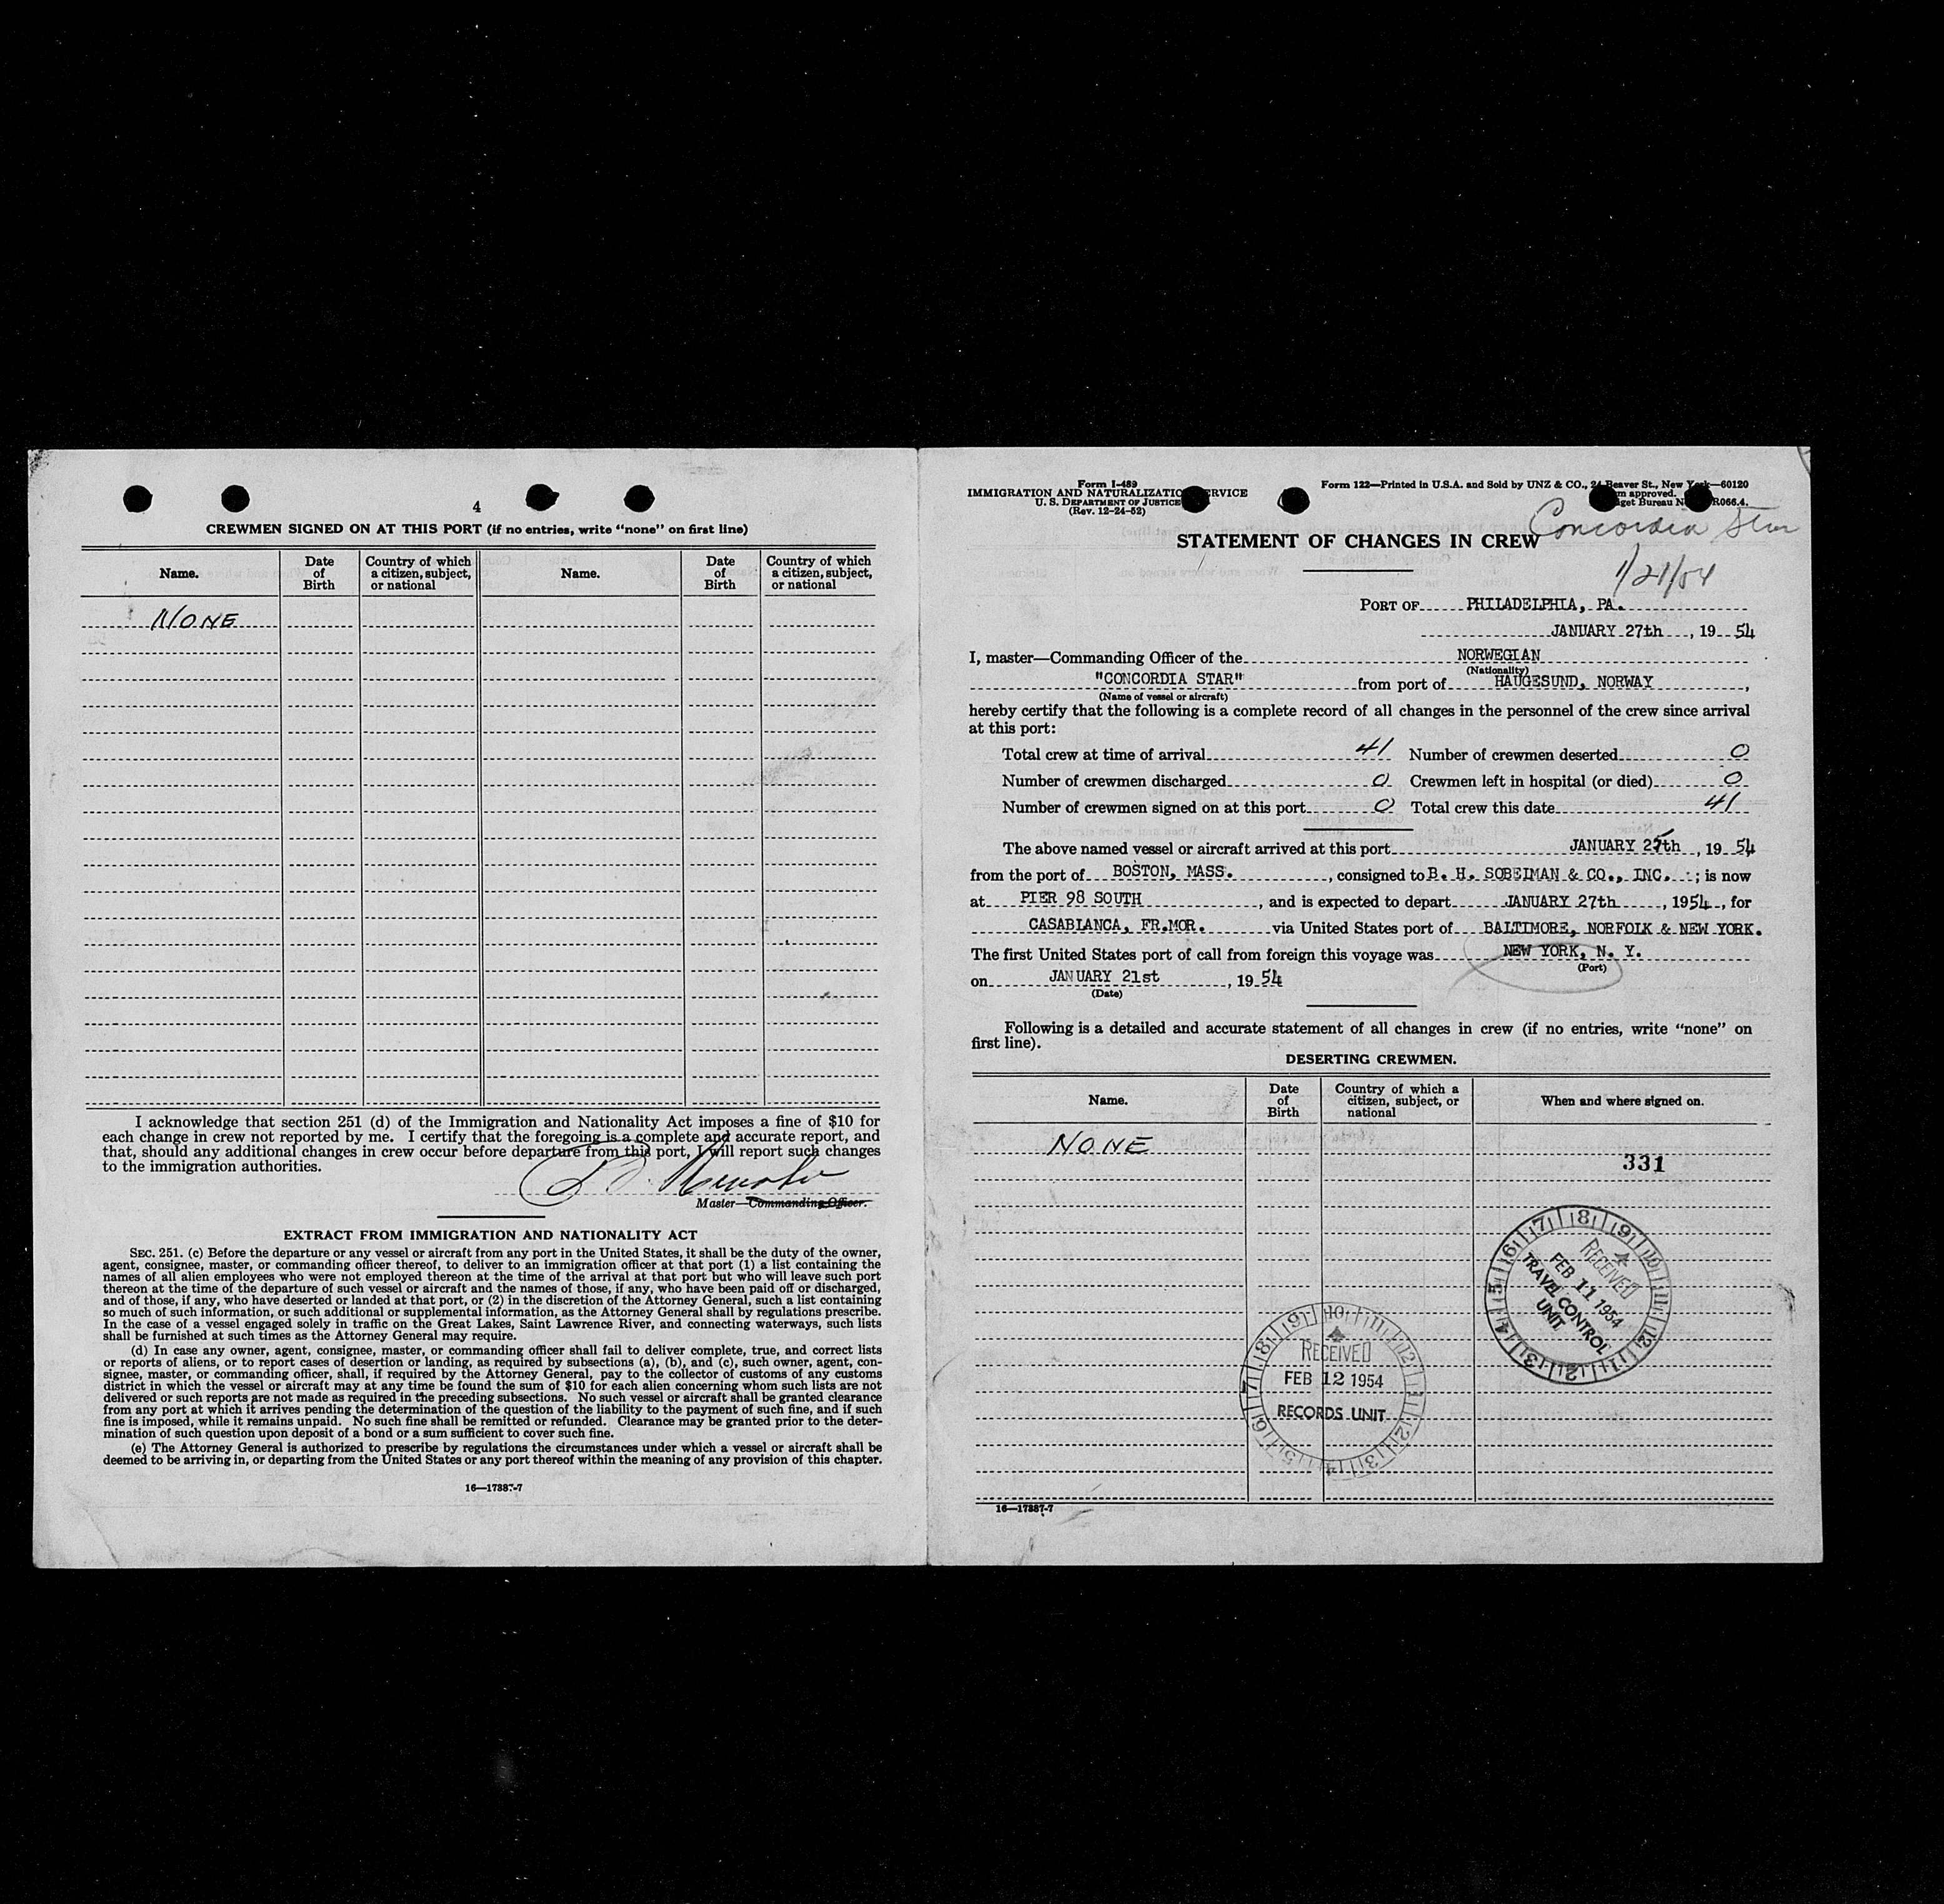 4
CREWMEN SIGNED ON AT THIS PORT (if no entries, write "none" on first line)
Name. Date of Birth Country of which a citizen, subject, or national Name. Date of Birth Country of which a citizen, subject, or national
NONE
I acknowledge that section 251 (d) of the Immigration and Nationality Act imposes a fine of $10 for
each change in crew not reported by me. I certify that the foregoing is a complete and accurate report, and
that, should any additional changes in crew occur before departure from this port, I will report such changes
to the immigration authorities.
Master—Commanding Officer.
EXTRACT FROM IMMIGRATION AND NATIONALITY ACT
SEC. 251. (c) Before the departure or any vessel or aircraft from any port in the United States, it shall be the duty of the owner,
agent, consignee, master, or commanding officer thereof, to deliver to an immigration officer at that port (1) a list containing the
names of all alien employees who were not employed thereon at the time of the arrival at that port but who will leave such port
thereon at the time of the departure of such vessel or aircraft and the names of those, if any, who have been paid off or discharged,
and of those, if any, who have deserted or landed at that port, or (2) in the discretion of the Attorney General, such a list containing
so much of such information, or such additional or supplemental information, as the Attorney General shall by regulations prescribe.
In the case of a vessel engaged solely in traffic on the Great Lakes, Saint Lawrence River, and connecting waterways, such lists
shall be furnished at such times as the Attorney General may require.
(d) In case any owner, agent, consignee, master, or commanding officer shall fail to deliver complete, true, and correct lists
or reports of aliens, or to report cases of desertion or landing, as required by subsections (a), (b), and (c), such owner, agent, con-
signee, master, or commanding officer, shall, if required by the Attorney General, pay to the collector of customs of any customs
district in which the vessel or aircraft may at any time be found the sum of $10 for each alien concerning whom such lists are not
delivered or such reports are not made as required in the preceding subsections. No such vessel or aircraft shall be granted clearance
from any port at which it arrives pending the determination of the question of the liability to the payment of such fine, and if such
fine is imposed, while it remains unpaid. No such fine shall be remitted or refunded. Clearance may be granted prior to the deter-
mination of such question upon deposit of a bond or a sum sufficient to cover such fine.
(e) The Attorney General is authorized to prescribe by regulations the circumstances under which a vessel or aircraft shall be
deemed to be arriving in, or departing from the United States or any port thereof within the meaning of any provision of this chapter.
16—17887-7
Form I-489
IMMIGRATION AND NATURALIZATION SERVICE
U. S. DEPARTMENT OF JUSTICE
(Rev. 12-24-52)
Form 122—Printed in U.S.A. and Sold by UNZ & CO., 24 Beaver St., New York—60120
approved.
Budget Bureau R066.4.
Concordia Star
1/21/54
STATEMENT OF CHANGES IN CREW
PORT OF PHILADELPHIA, PA.
JANUARY 27th, 19 54
I, master—Commanding Officer of the NORWEGIAN
(Nationality)
"CONCORDIA STAR" from port of HAUGESUND, NORWAY,
(Name of vessel or aircraft)
hereby certify that the following is a complete record of all changes in the personnel of the crew since arrival
at this port:
Total crew at time of arrival 41 Number of crewmen deserted 0
Number of crewmen discharged 0 Crewmen left in hospital (or died) 0
Number of crewmen signed on at this port 0 Total crew this date 41
The above named vessel or aircraft arrived at this port JANUARY 25th, 19 54
from the port of BOSTON, MASS., consigned to B. H. SOBELMAN & CO., INC. ; is now
at PIER 98 SOUTH, and is expected to depart JANUARY 27th, 1954, for
CASABLANCA, FR.MOR. via United States port of BALTIMORE, NORFOLK & NEW YORK.
The first United States port of call from foreign this voyage was NEW YORK, N. Y.
(Port)
on JANUARY 21st, 19 54
(Date)
Following is a detailed and accurate statement of all changes in crew (if no entries, write "none" on
first line).
DESERTING CREWMEN.
Name. Date of Birth Country of which a citizen, subject, or national When and where signed on.
NONE
331
RECEIVED
FEB 11 1954
TRAVEL CONTROL
UNIT
RECEIVED
FEB 12 1954
RECORDS UNIT
16—17887-7